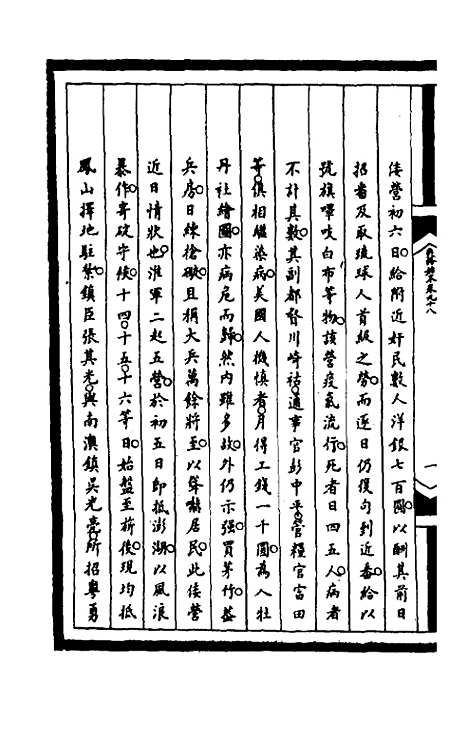 倭營初六日給附近奸民數人洋銀七百圓以酬其前日
招番及取琉球人首級之勞而逐日仍復勾到近番給以
號旗嗶吱白布等物該營疫氣流行死者日四五人病者
不計其數其副都督川崎祐通事官彭中平營糧官富田
等俱相繼染病美國人機慎者月得工錢一千圓為入牡
丹社繪圖亦病危而歸然內雖多故外仍亦強買茅竹蓋
兵房日練槍礮且稱大兵萬餘將至以榮嚇居民此倭營
近日情狀也淮軍二起五營於初五日即抵澎湖以風浪
暴作寄碇守候十四十五十六等日始盤至旂後現均抵
鳳山擇地駐紮鎮臣張其光與南澳鎮吳光亮所招粵勇
卷九十八
一